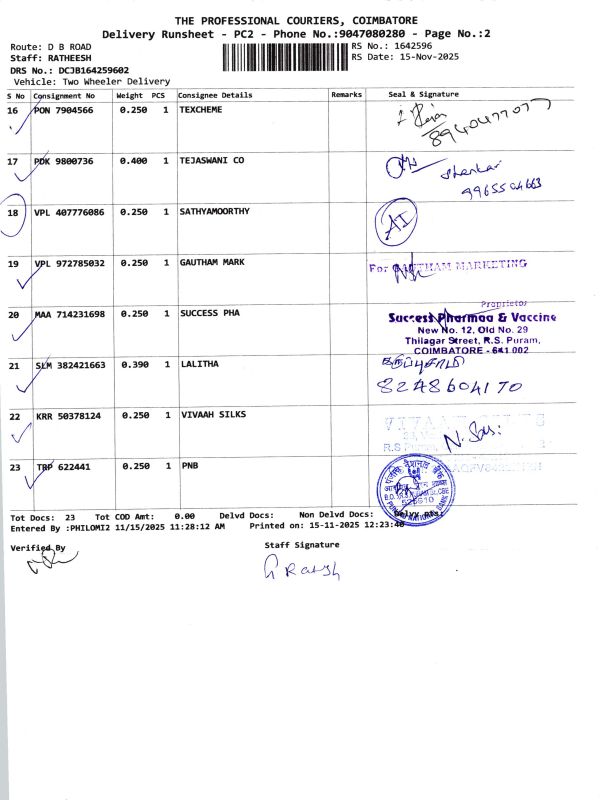 THE PROFESSIONAL COURIERS, COIMBATORE
Delivery Runsheet - PC2 - Phone No.:9047080280 - Page No.:2
Route: D B ROAD
RS No.: 1642596
Staff: RATHEESH
RS Date: 15-Nov-2025
DRS No.: DCJB164259602
Vehicle: Two Wheeler Delivery
S No Consignment No Weight PCS Consignee Details Remarks Seal & Signature
16 PON 7904566 0.250 1 TEXCHEME
8940477077
17 PDK 9800736 0.400 1 TEJASWANI CO
Shankar
9965504663
18 VPL 407776086 0.250 1 SATHYAMOORTHY
AI
19 VPL 972785032 0.250 1 GAUTHAM MARK
For GAUTHAM MARKETING
Proprietor
20 MAA 714231698 0.250 1 SUCCESS PHA
Success Pharmaa & Vaccine
New No. 12, Old No. 29
Thilagar Street, R.S. Puram,
COIMBATORE - 641 002
21 SLM 382421663 0.390 1 LALITHA
கருப்புசாமி
8248604170
22 KRR 50378124 0.250 1 VIVAAH SILKS
R.S
23 TRP 622441 0.250 1 PNB
पंजाब नैशनल बैंक
PUNJAB NATIONAL BANK
Tot Docs: 23 Tot COD Amt: 0.00 Delvd Docs: Non Delvd Docs: Delvy Rts:
Entered By :PHILOMI2 11/15/2025 11:28:12 AM Printed on: 15-11-2025 12:23:46
Verified By
Staff Signature